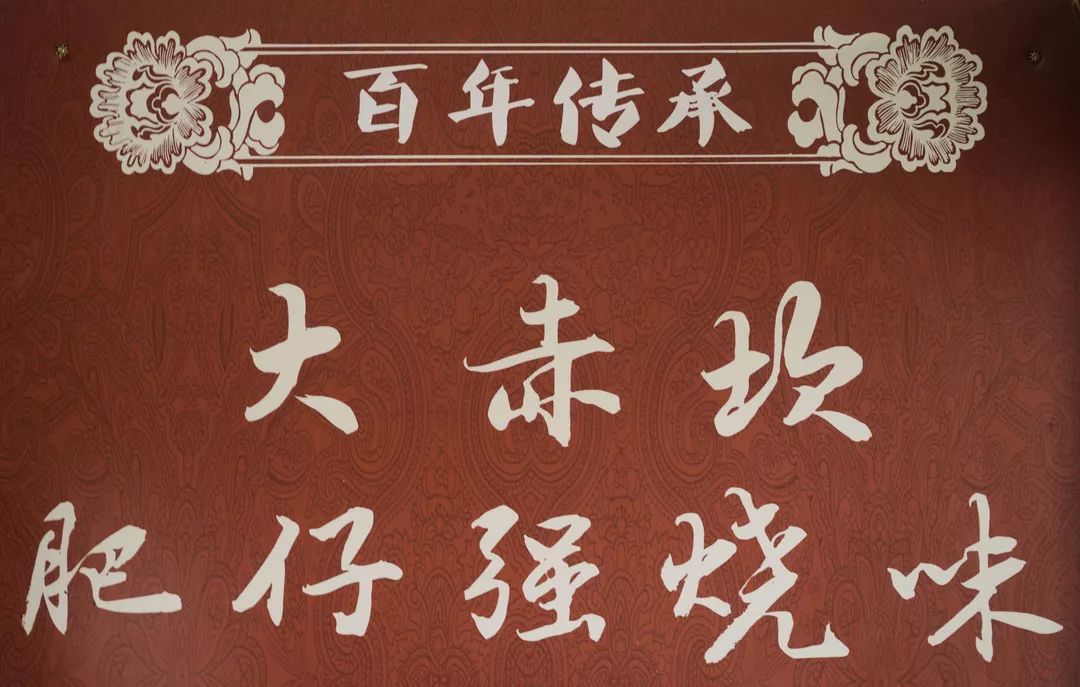 百年传承
大赤坎
肥仔强烧味